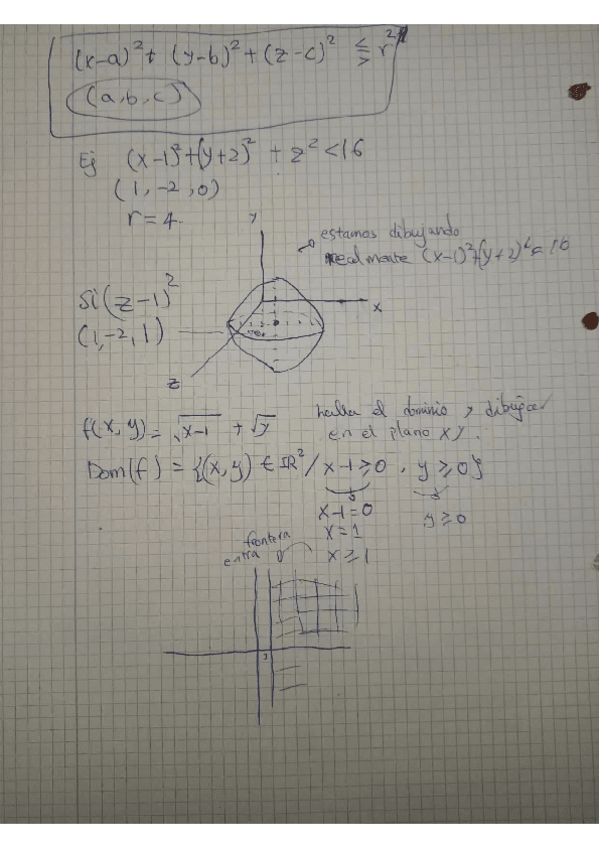 (x-a)² + (y-b)² + (z-c)² ≤ > r²
(a, b, c)
Ej (x-1)² + (y+2)² + z² < 16
(1, -2, 0)
r = 4.
y
estamos dibujando
realmente (x-1)² + (y+2)² = 16
Si (z-1)²
(1, -2, 1)
x
z
f(x, y) = √x-1 + √y
halla el dominio y dibujar
en el plano xy.
Dom(f) = {(x, y) ∈ ℝ² / x-1 ≥ 0, y ≥ 0}
x-1 = 0
y ≥ 0
x = 1
frontera
entra
x ≥ 1